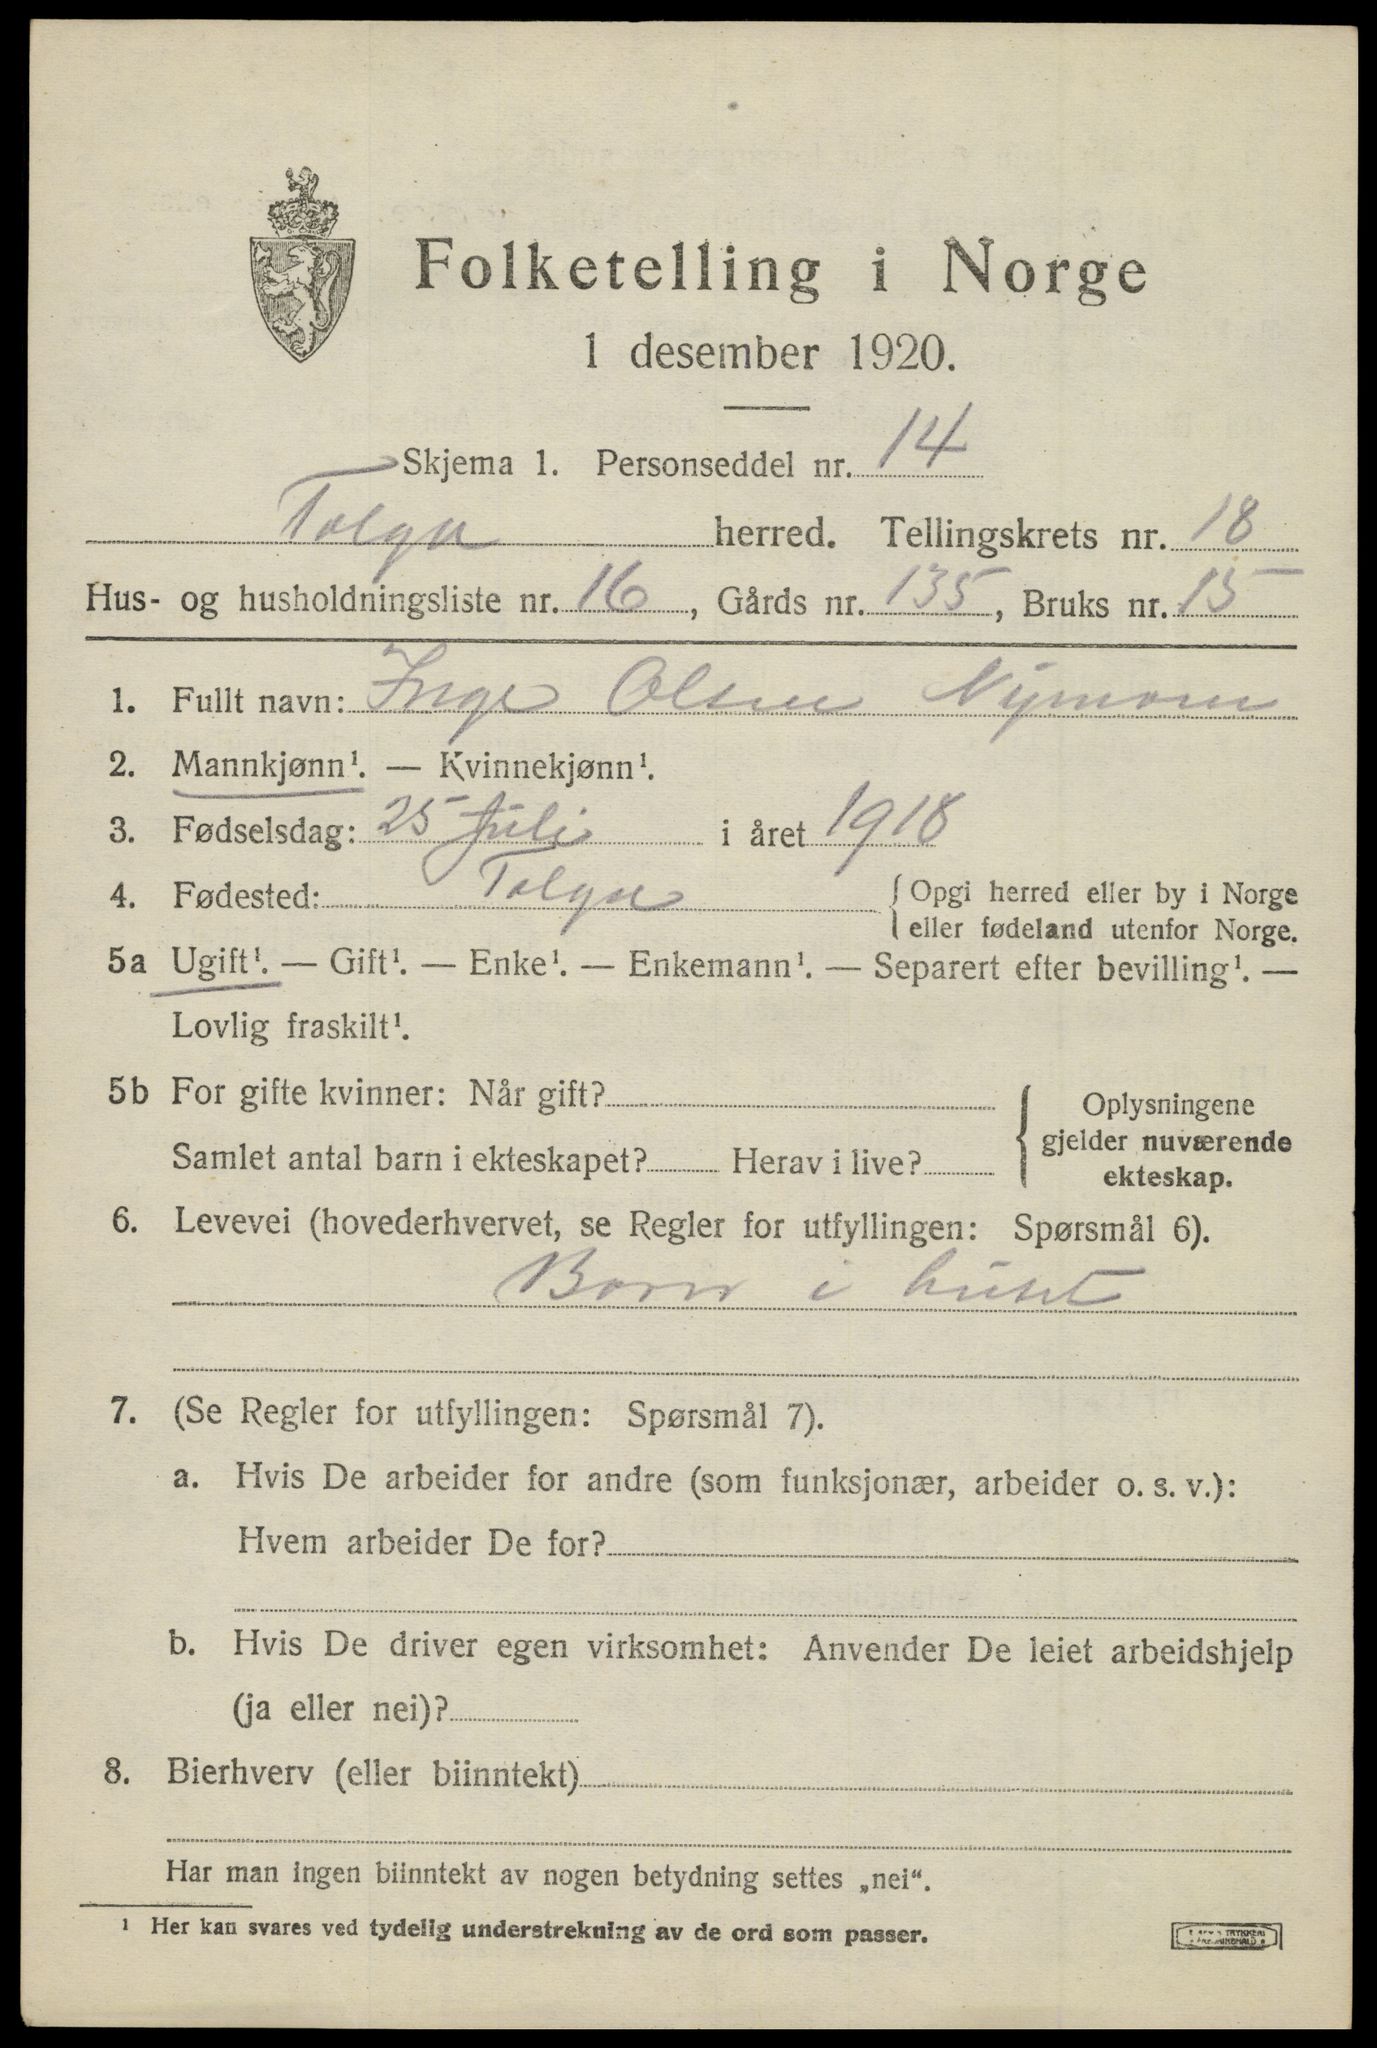 Folketelling i Norge
1 desember 1920.
Skjema 1. Personseddel nr. 14
Tolga herred. Tellingskrets nr. 18
Hus- og husholdningsliste nr. 16, Gårds nr. 135, Bruks nr. 15
1. Fullt navn: Inge Olsen Nymoen
2. Mannkjønn¹. — Kvinnekjønn¹.
3. Fødselsdag: 25 Juli i året 1918
4. Fødested: Tolga { Opgi herred eller by i Norge
eller fødeland utenfor Norge.
5a Ugift¹. — Gift¹. — Enke¹. — Enkemann¹. — Separert efter bevilling¹. —
Lovlig fraskilt¹.
5b For gifte kvinner: Når gift?
Samlet antal barn i ekteskapet? Herav i live?
{ Oplysningene
gjelder nuværende
ekteskap.
6. Levevei (hovederhvervet, se Regler for utfyllingen: Spørsmål 6).
Barn i huset
7. (Se Regler for utfyllingen: Spørsmål 7).
a. Hvis De arbeider for andre (som funksjonær, arbeider o. s. v.):
Hvem arbeider De for?
b. Hvis De driver egen virksomhet: Anvender De leiet arbeidshjelp
(ja eller nei)?
8. Bierhverv (eller biinntekt)
Har man ingen biinntekt av nogen betydning settes „nei“.
¹ Her kan svares ved tydelig understrekning av de ord som passer.